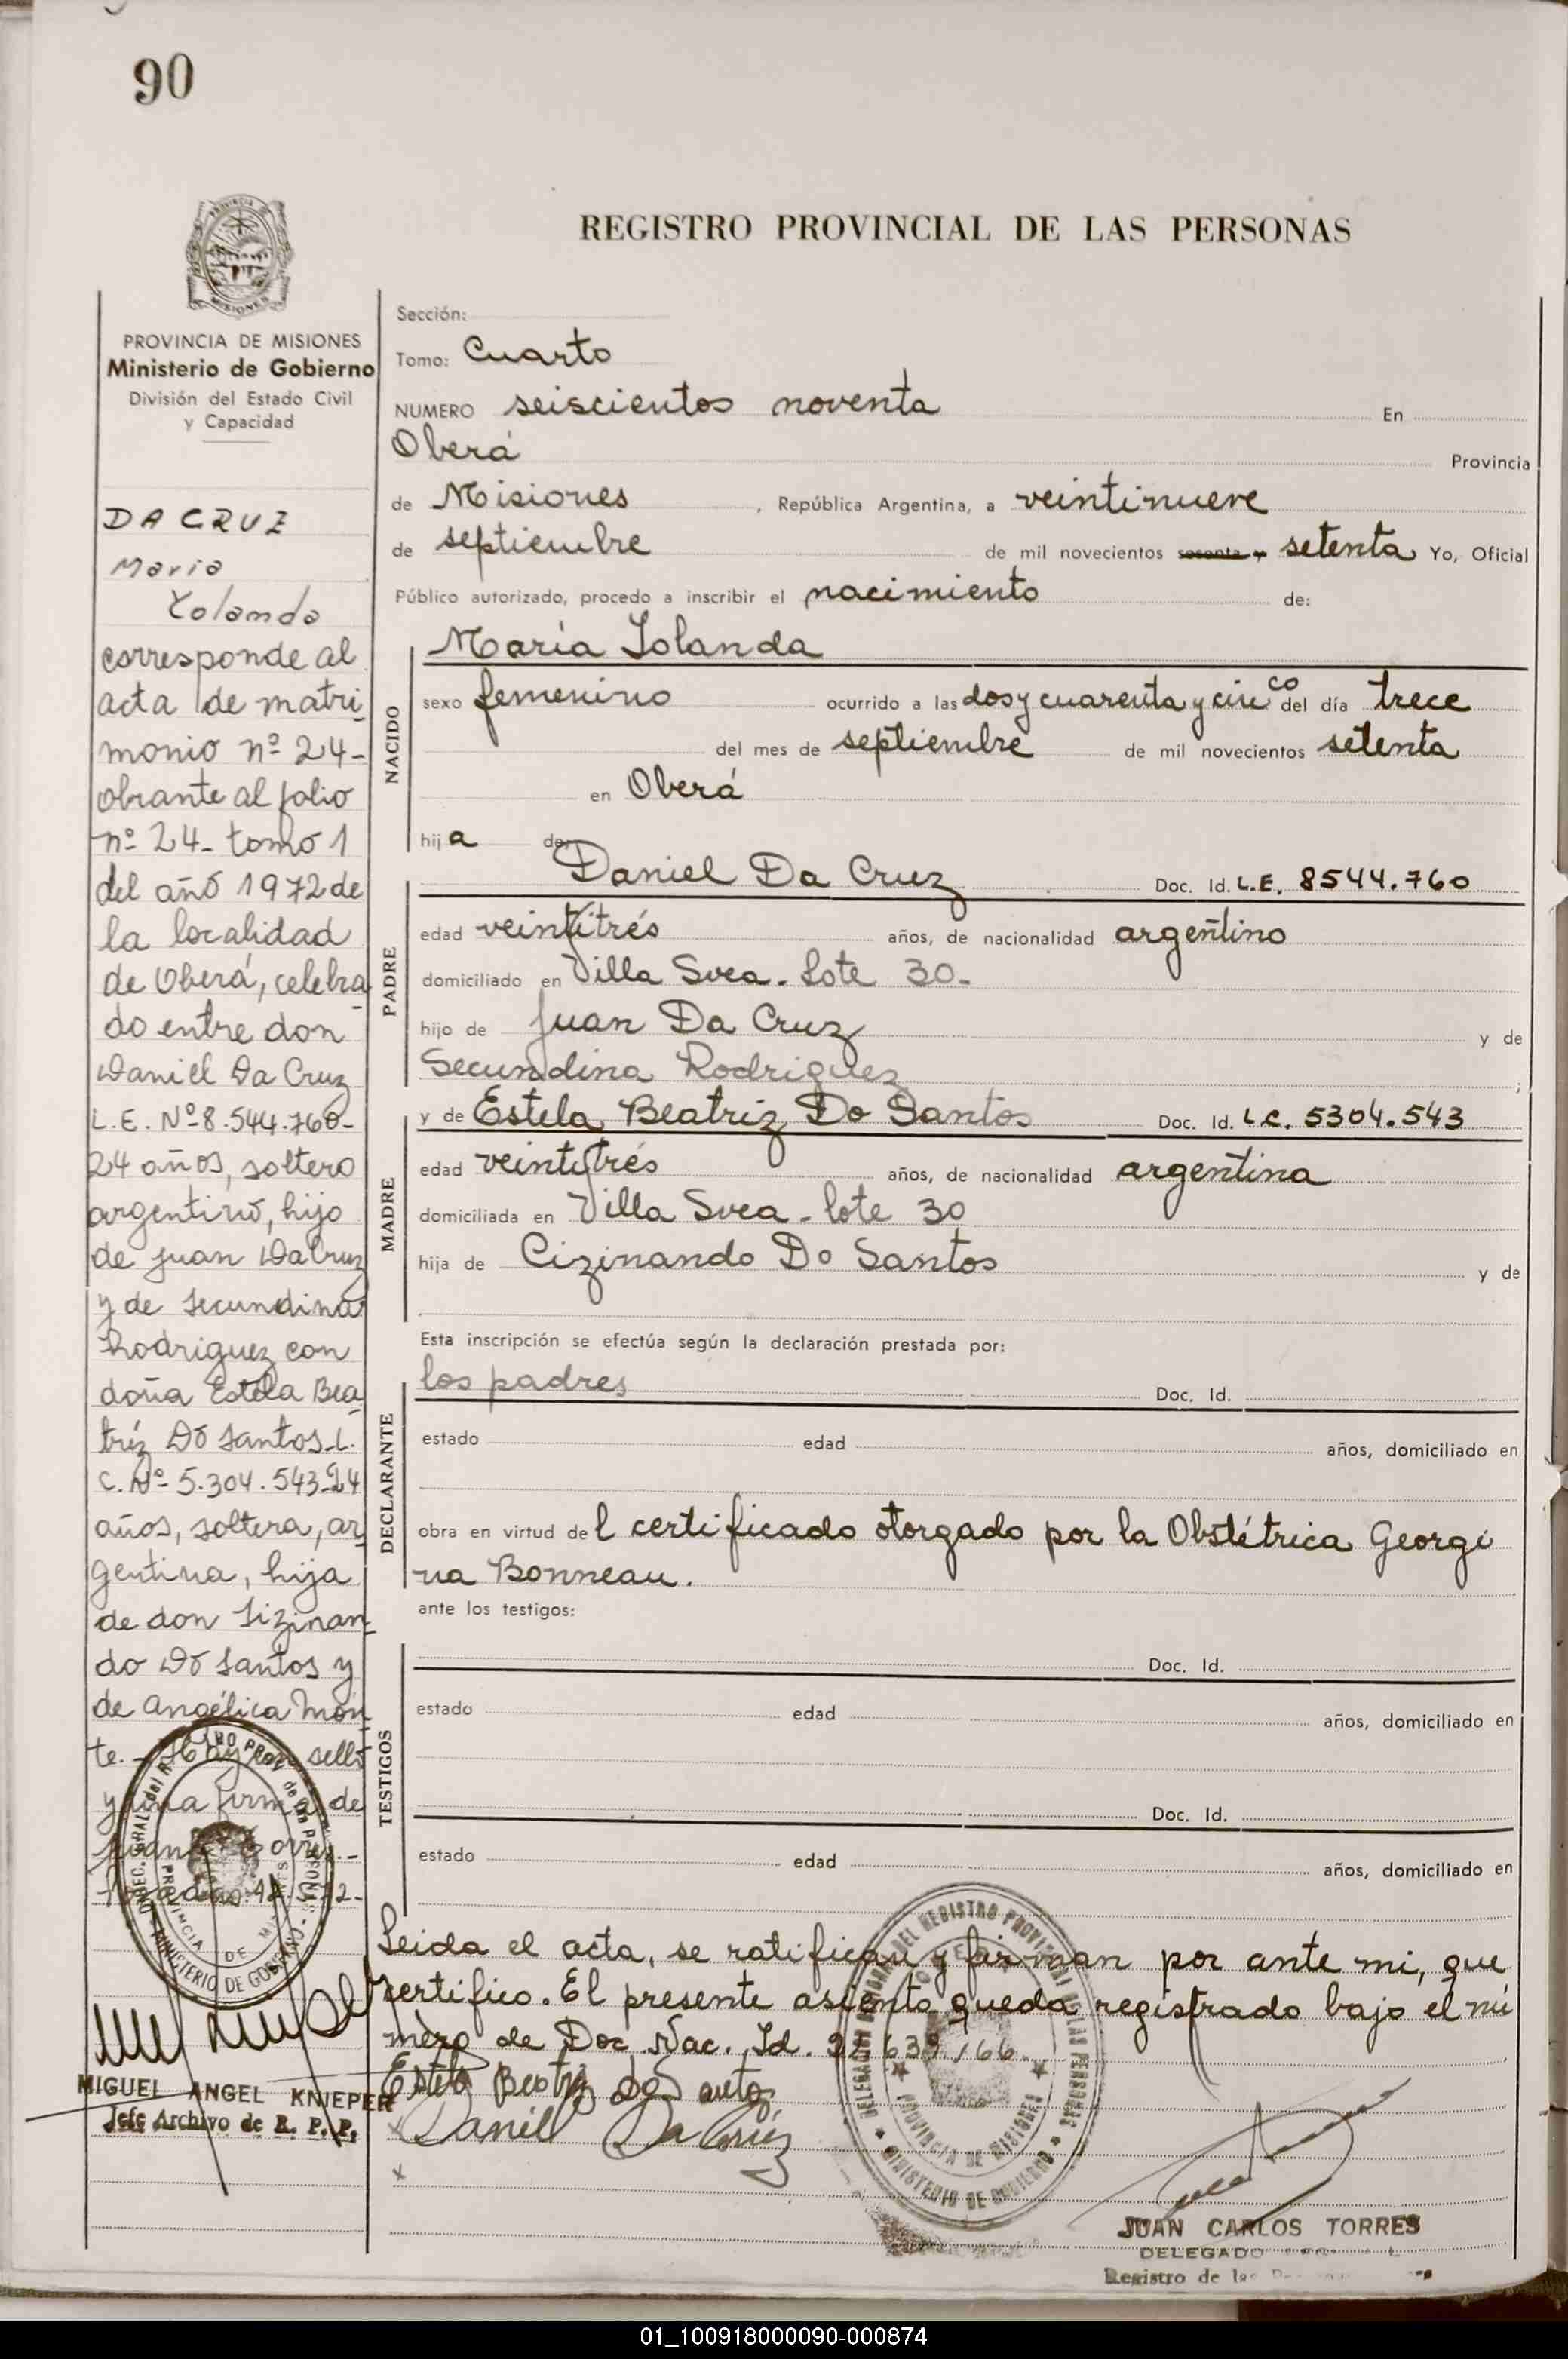 90
REGISTRO PROVINCIAL DE LAS PERSONAS
PROVINCIA DE MISIONES
Ministerio de Gobierno
División del Estado Civil
y Capacidad
DA CRUZ
Maria
Yolanda
corresponde al
acta de matri
monio nº 24-
obrante al folio
nº 24- tomo 1
del año 1972 de
la localidad
de Oberá, celebra
do entre don
Daniel Da Cruz
L.E. Nº 8.544.760-
24 años, soltero
argentino, hijo
de Juan Da Cruz
y de Secundina
Rodriguez con
doña Estela Bea
triz Do Santos L.
C. Nº 5.304.543-24
años, soltera, ar
gentina, hija
de don Sizinan
do Do Santos y
de Angélica Mon
te. - Hay un sello
y una firma de
MIGUEL ANGEL KNIEPER
Jefe Archivo de R. P. P.
Sección:
Tomo: Cuarto
NUMERO seiscientos noventa En
Oberá Provincia
de Misiones, República Argentina, a veintinueve
de septiembre de mil novecientos sesenta y setenta Yo, Oficial
Público autorizado, procedo a inscribir el nacimiento de:
NACIDO
María Iolanda
sexo femenino ocurrido a las dos y cuarenta y cinco del día trece
del mes de septiembre de mil novecientos setenta
en Oberá
hija de
PADRE
Daniel Da Cruz Doc. Id. L.E. 8544.760
edad veintitrés años, de nacionalidad argentino
domiciliado en Villa Svea. Lote 30-
hijo de Juan Da Cruz y de
Secundina Rodriguez ;
MADRE
y de Estela Beatriz Do Santos Doc. Id. L.C. 5304.543
edad veintitrés años, de nacionalidad argentina
domiciliada en Villa Svea - lote 30
hija de Cizinando Do Santos y de
Esta inscripción se efectúa según la declaración prestada por:
DECLARANTE
los padres Doc. Id.
estado edad años, domiciliado en
obra en virtud del certificado otorgado por la Obstétrica Georgi
na Bonneau.
ante los testigos:
TESTIGOS
Doc. Id.
estado edad años, domiciliado en
Doc. Id.
estado edad años, domiciliado en
Leida el acta, se ratifican y firman por ante mi, que
certifico. El presente asiento queda registrado bajo el nú
mero de Doc. Nac. Id.
Daniel Da Cruz
JUAN CARLOS TORRES
DELEGADO
Registro de las
01_100918000090-000874